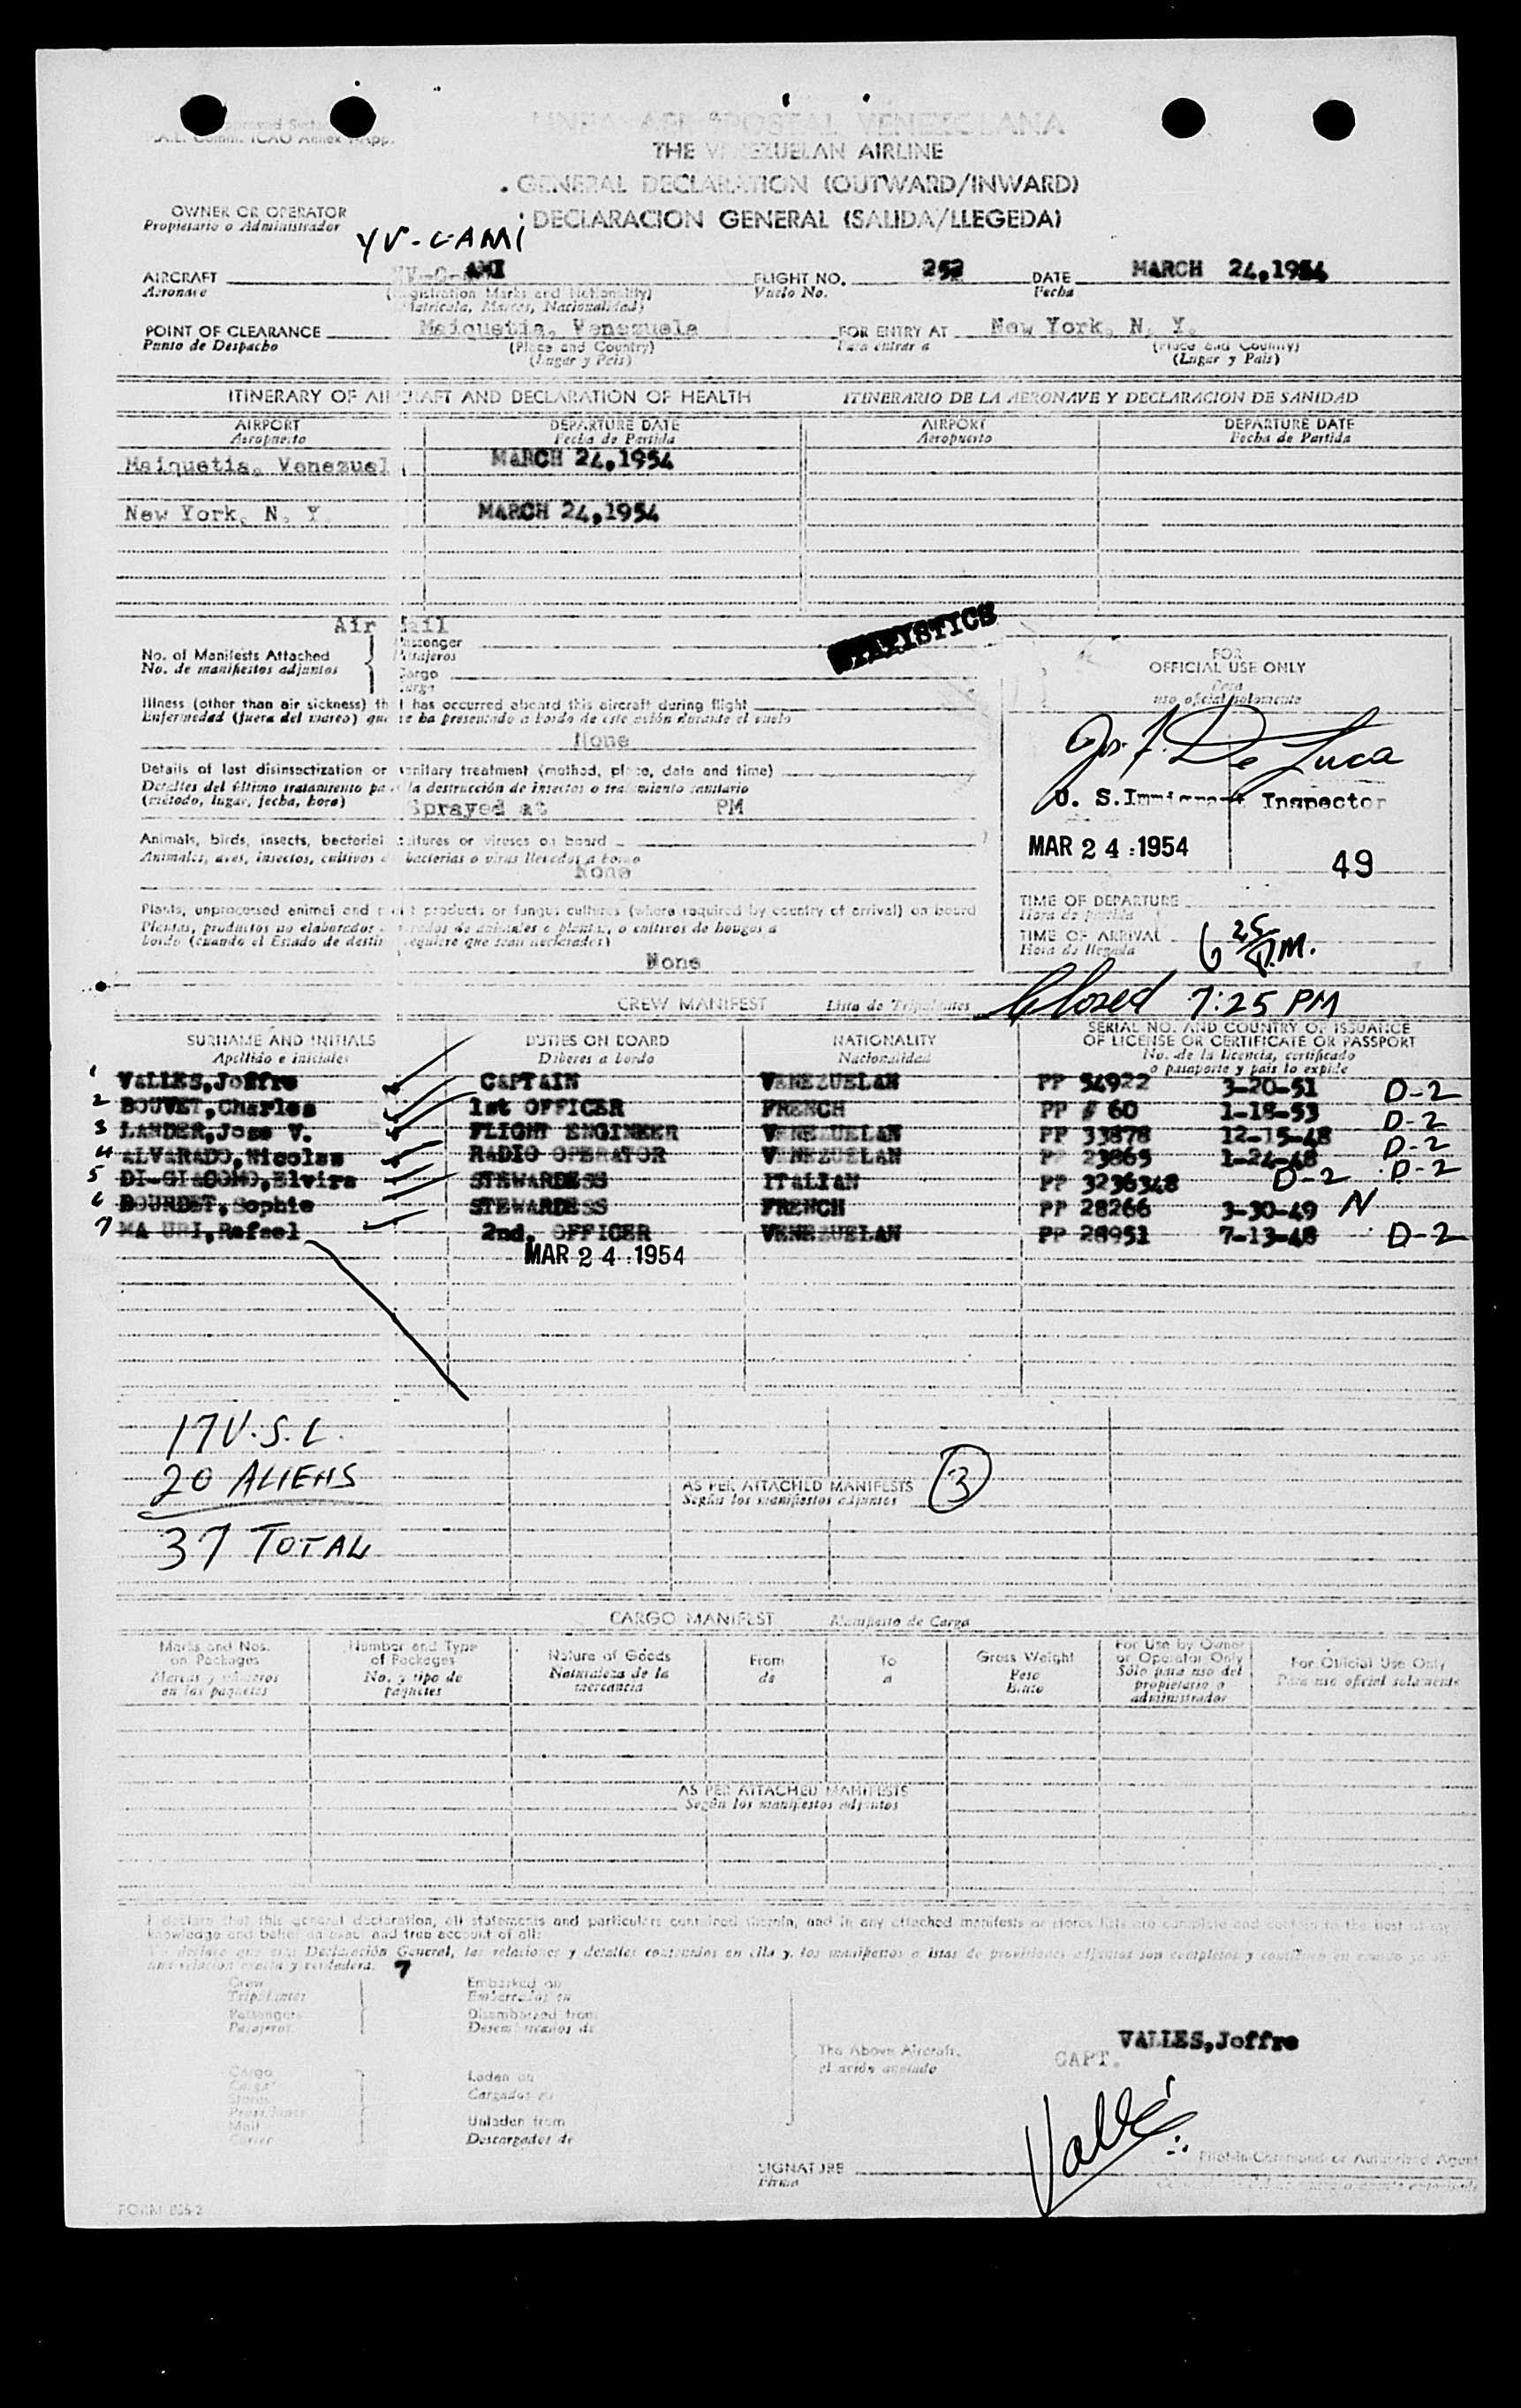 LINEA AEROPOSTAL VENEZOLANA
THE VENEZUELAN AIRLINE
GENERAL DECLARATION (OUTWARD/INWARD)
DECLARACION GENERAL (SALIDA/LLEGEDA)
OWNER OR OPERATOR
Propietario o Administrador
YV-C-AMI
AIRCRAFT YV-C-AMI FLIGHT NO. 252 DATE MARCH 24,1954
Aeronave (Registration Marks and Nationality) Vuelo No. Fecha
(Matricula, Marcas, Nacionalidad)
POINT OF CLEARANCE Maiquetia, Venezuela FOR ENTRY AT New York, N. Y.
Punto de Despacho (Place and Country) Para entrar a (Place and Country)
(Lugar y Pais) (Lugar y Pais)
ITINERARY OF AIRCRAFT AND DECLARATION OF HEALTH ITINERARIO DE LA AERONAVE Y DECLARACION DE SANIDAD
AIRPORT DEPARTURE DATE AIRPORT DEPARTURE DATE
Aeropuerto Fecha de Partida Aeropuerto Fecha de Partida
Maiquetia, Venezuel MARCH 24,1954
New York, N. Y. MARCH 24,1954
Air Mail
STATISTICS
No. of Manifests Attached Passenger
No. de manifiestos adjuntos Pasajeros
Cargo
Carga
FOR
OFFICIAL USE ONLY
Para
uso oficial solamente
Illness (other than air sickness) that has occurred aboard this aircraft during flight
Enfermedad (fuera del mareo) que se ha presentado a bordo de este avión durante el vuelo
None
Jos. F. De Luca
U. S. Immigrant Inspector
MAR 24 1954
49
Details of last disinsectization or sanitary treatment (method, place, date and time)
Detalles del último tratamiento para la destrucción de insectos o tratamiento sanitario
(método, lugar, fecha, hora) Sprayed at PM
Animals, birds, insects, bacterial cultures or viruses on board
Animales, aves, insectos, cultivos de bacterias o virus llevados a bordo
None
Plants, unprocessed animal and plant products or fungus cultures (where required by country of arrival) on board
Plantas, productos no elaborados derivados de animales o plantas, o cultivos de hongos a
bordo (cuando el Estado de destino requiere que sean declarados)
None
TIME OF DEPARTURE
Hora de partida
TIME OF ARRIVAL 6 25 P.M.
Hora de llegada
CREW MANIFEST Lista de Tripulantes Closed 7:25 PM
SURNAME AND INITIALS DUTIES ON BOARD NATIONALITY SERIAL NO. AND COUNTRY OF ISSUANCE
OF LICENSE OR CERTIFICATE OR PASSPORT
Apellido e iniciales Deberes a bordo Nacionalidad No. de la licencia, certificado
o pasaporte y pais lo expide
1 VALLES,Joffre CAPTAIN VENEZUELAN PP 54922 3-20-51 D-2
2 BOUVET,Charles 1st OFFICER FRENCH PP # 60 1-18-53 D-2
3 LANDER,Jose V. FLIGHT ENGINEER VENEZUELAN PP 33878 12-15-48 D-2
4 ALVARADO,Nicolas RADIO OPERATOR VENEZUELAN PP 23865 1-24-48 D-2
5 DI-GIACOMO,Elvira STEWARDESS ITALIAN PP 3236348 D-2
6 BOURDET,Sophie STEWARDESS FRENCH PP 28266 3-30-49 N
7 MA URI,Rafael 2nd. OFFICER VENEZUELAN PP 28951 7-13-48 D-2
MAR 24 1954
17 U.S.C.
20 ALIENS
37 TOTAL
AS PER ATTACHED MANIFESTS 3
Según los manifiestos adjuntos
CARGO MANIFEST Manifiesto de Carga
Marks and Nos. on Packages Number and Type of Packages Nature of Goods From To Gross Weight For Use by Owner or Operator Only For Official Use Only
Marcas y números en los paquetes No. y tipo de paquetes Naturaleza de la mercancia de a Peso Bruto Sólo para uso del propietario o administrador Para uso oficial solamente
AS PER ATTACHED MANIFESTS
Según los manifiestos adjuntos
I declare that this general declaration, all statements and particulars contained therein, and in any attached manifests or stores lists are complete and contain to the best of my
knowledge and belief an exact and true account of all:
7
Crew Embarked on
Tripulantes Embarcados en
Passengers Disembarked from
Pasajeros Desembarcados de
The Above Aircraft.
el avión anotado
VALLES,Joffre
CAPT.
Cargo Laden on
Carga Cargados en
Stores
Mail Unladen from
Correo Descargados de
Valles
SIGNATURE Pilot-in-Command or Authorized Agent
Firma
FORM 805-2